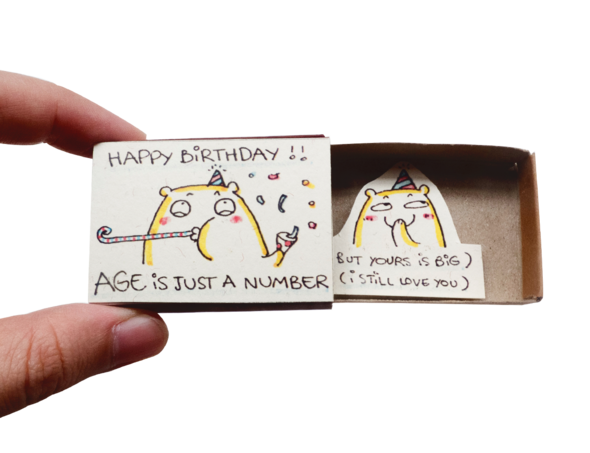 HAPPY BiRTHDAY !!
AGE iS JUST A NUMBER
BUT YOURS iS BiG )
(i STiLL LOVE YOU )